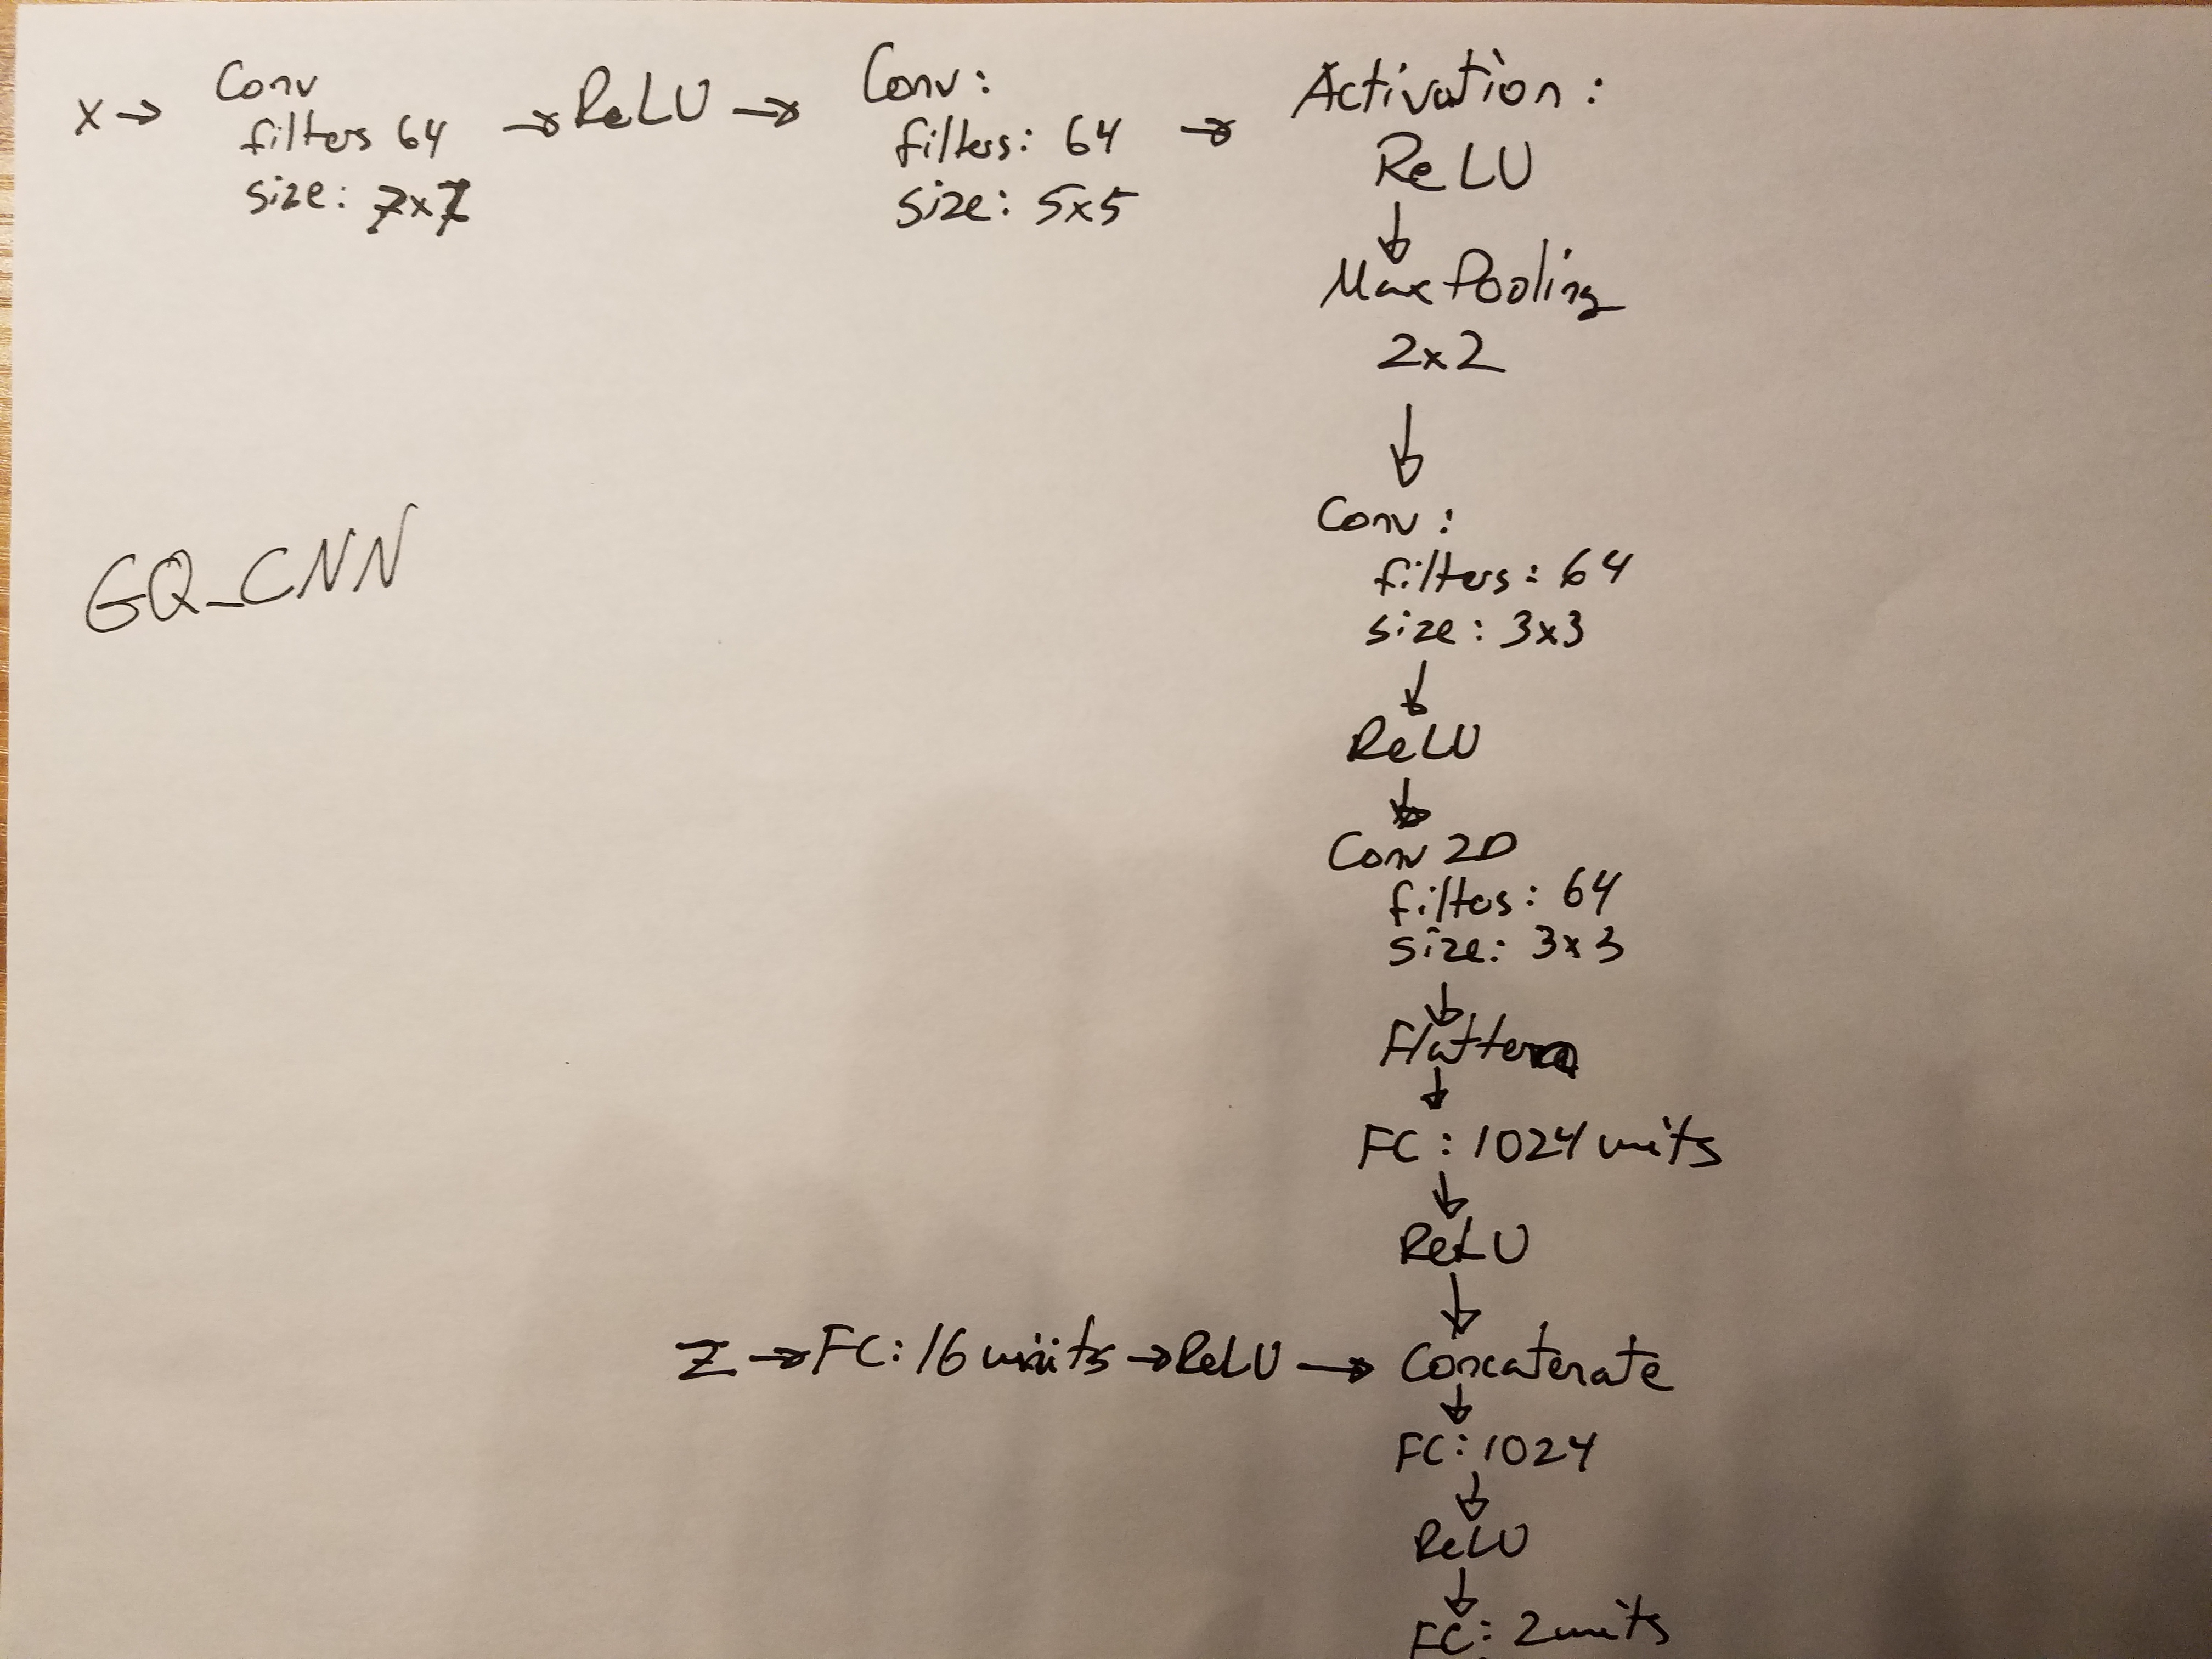 x → Conv
filters 64
size: 7x7
→ ReLU →
Conv:
filters: 64
size: 5x5
→
Activation:
ReLU
↓
Max Pooling
2x2
↓
Conv:
filters: 64
size: 3x3
↓
ReLU
↓
Conv 2D
filters: 64
size: 3x3
↓
Flatten
↓
FC: 1024 units
↓
ReLU
↓
Z → FC: 16 units → ReLU → Concatenate
↓
FC: 1024
↓
ReLU
↓
FC: 2 units
GQ_CNN